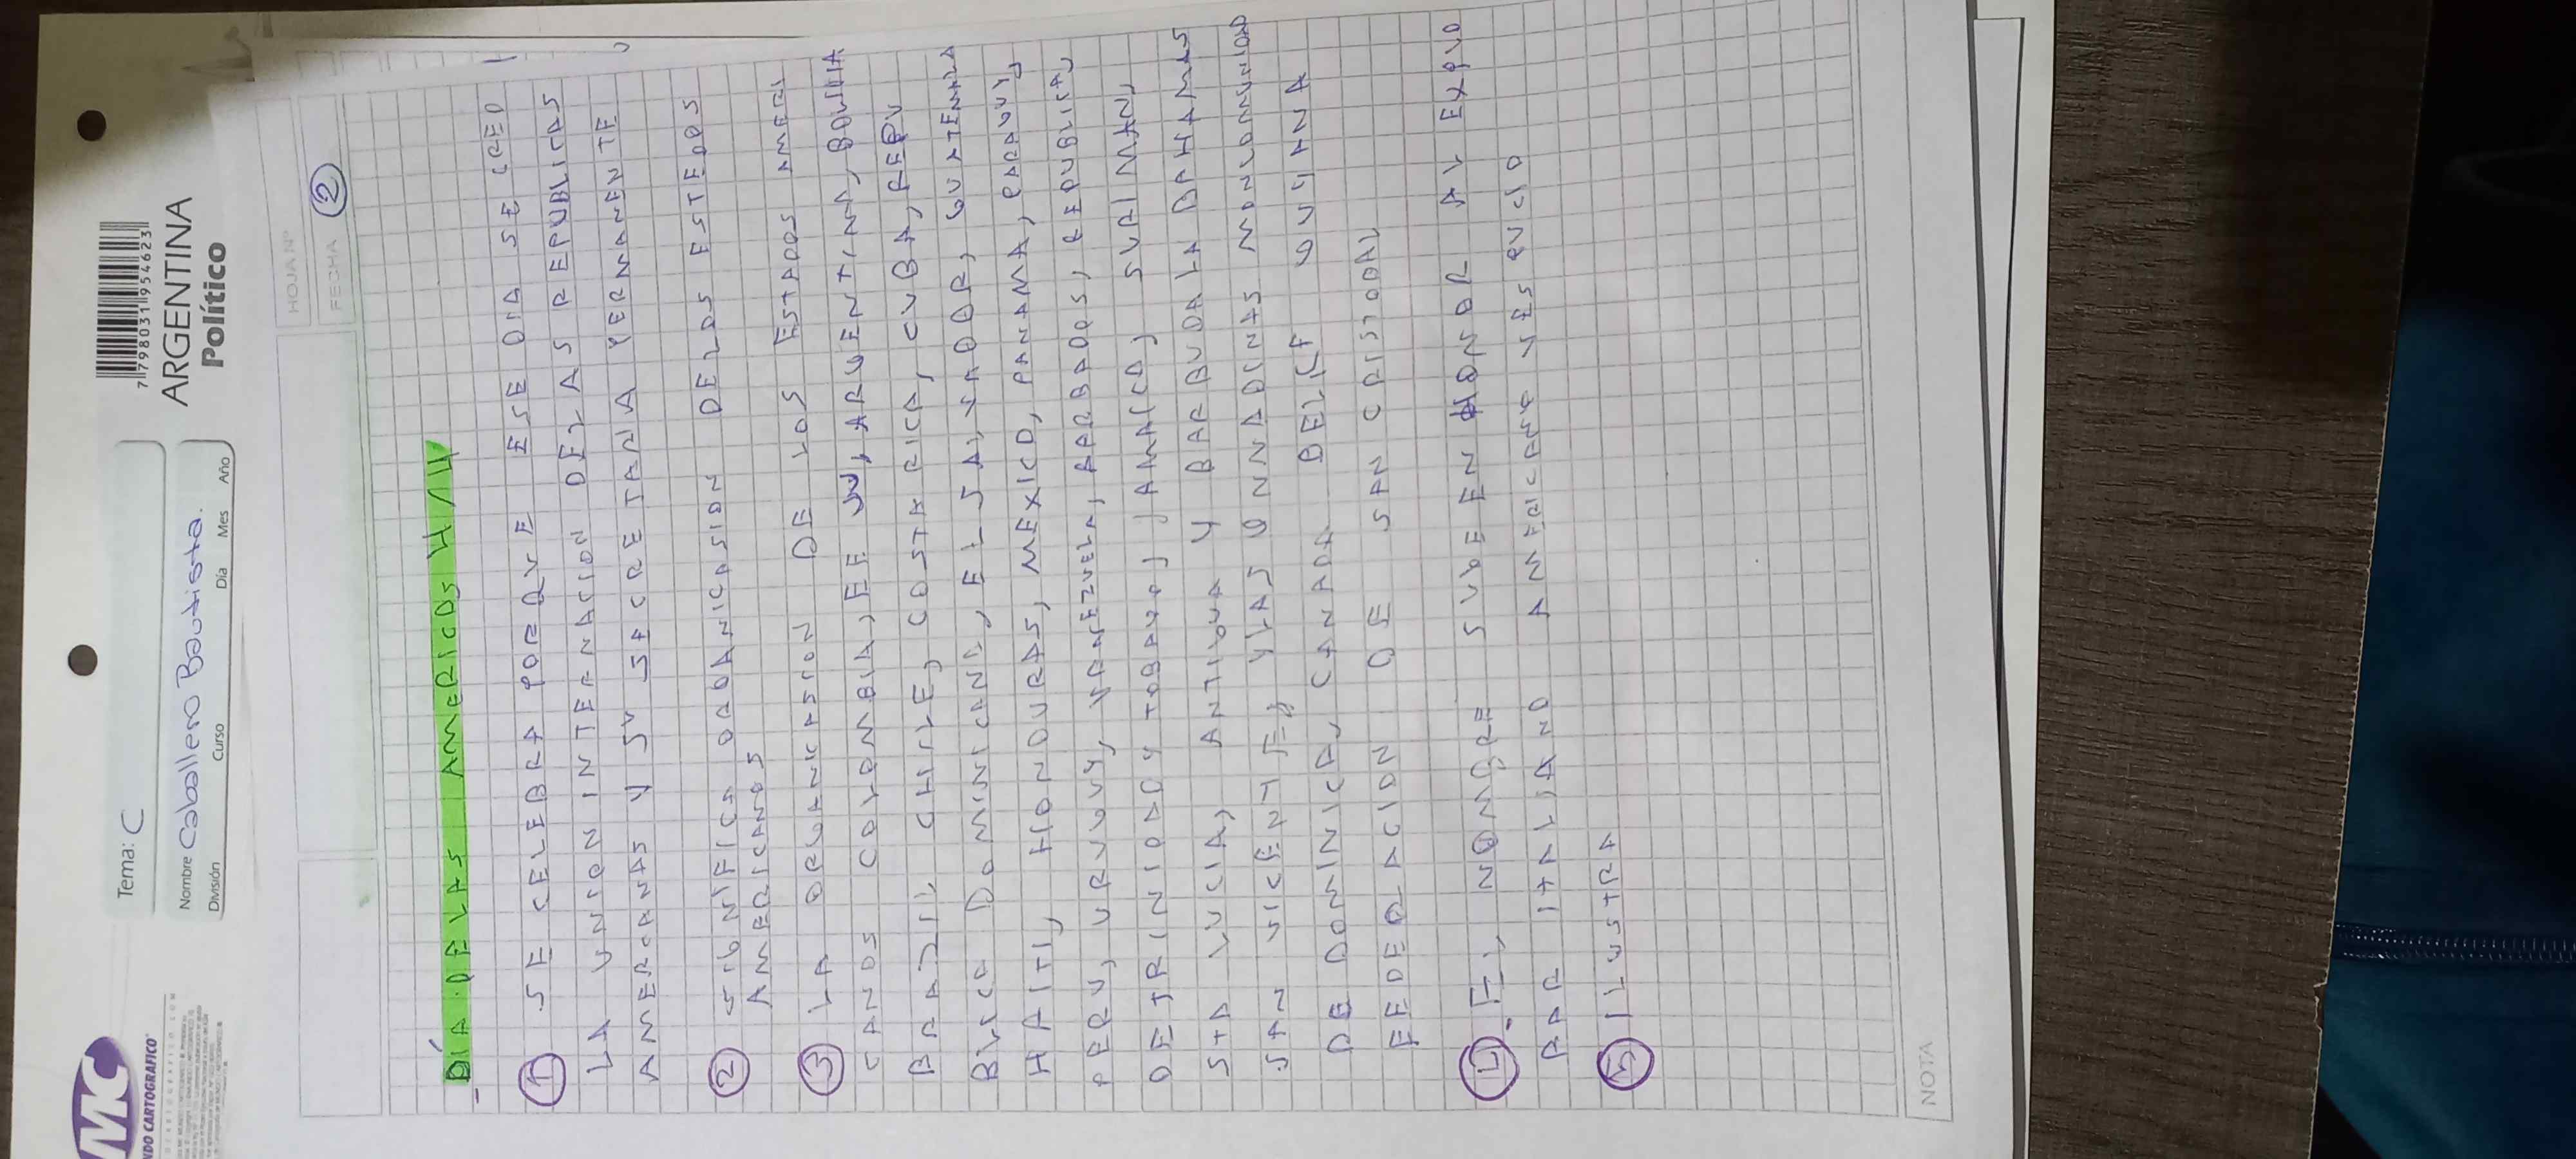 7 798031 954623
ARGENTINA
Político
Tema: C
Nombre Caballero Bautista.
División Curso Día Mes Año
MC
NDO CARTOGRAFICO
HOJA Nº
FECHA 2
DÍA DE LAS AMERICAS 4/14
1 SE CELEBRA PORQUE ESE DIA SE CREO
LA UNION INTERNACION DE LAS REPUBLICAS
AMERCANAS Y SU SECRETARIA PERMANENTE
2 SIGNIFICA ORGANICASION DE LOS ESTEDOS
AMERICANOS
3 LA ORGANICASION DE LOS ESTADOS AMERI
CANOS COLOMBIA, EE UU, ARGENTINA, BOLIVIA
BRAZIL, CHILE, COSTA RICA, CUBA, REPU
BLICA DOMINICANA, EL SALVADOR, GUATEMALA
HAITI, HONDURAS, MEXICO, PANAMA, PARAGUAY,
PERU, URUGUAY, VENEZUELA, BARBADOS, REPUBLICA
DE TRINIDAD Y TOBAGO, JAMAICA, SURINAM
STA LUCIA, ANTIGUA Y BARBUDA LA BAHAMAS
SAN VICENTE Y LAS GRANADINAS MANCOMUNIDAD
DE DOMINICA, CANADA BELICE GUYANA
FEDERACION DE SAN CRISTOBAL
4 EL NOMBRE SURGE EN HONOR A EXPLO
RADOR ITALIANO AMERICANO
5 ILUSTRA
NOTA